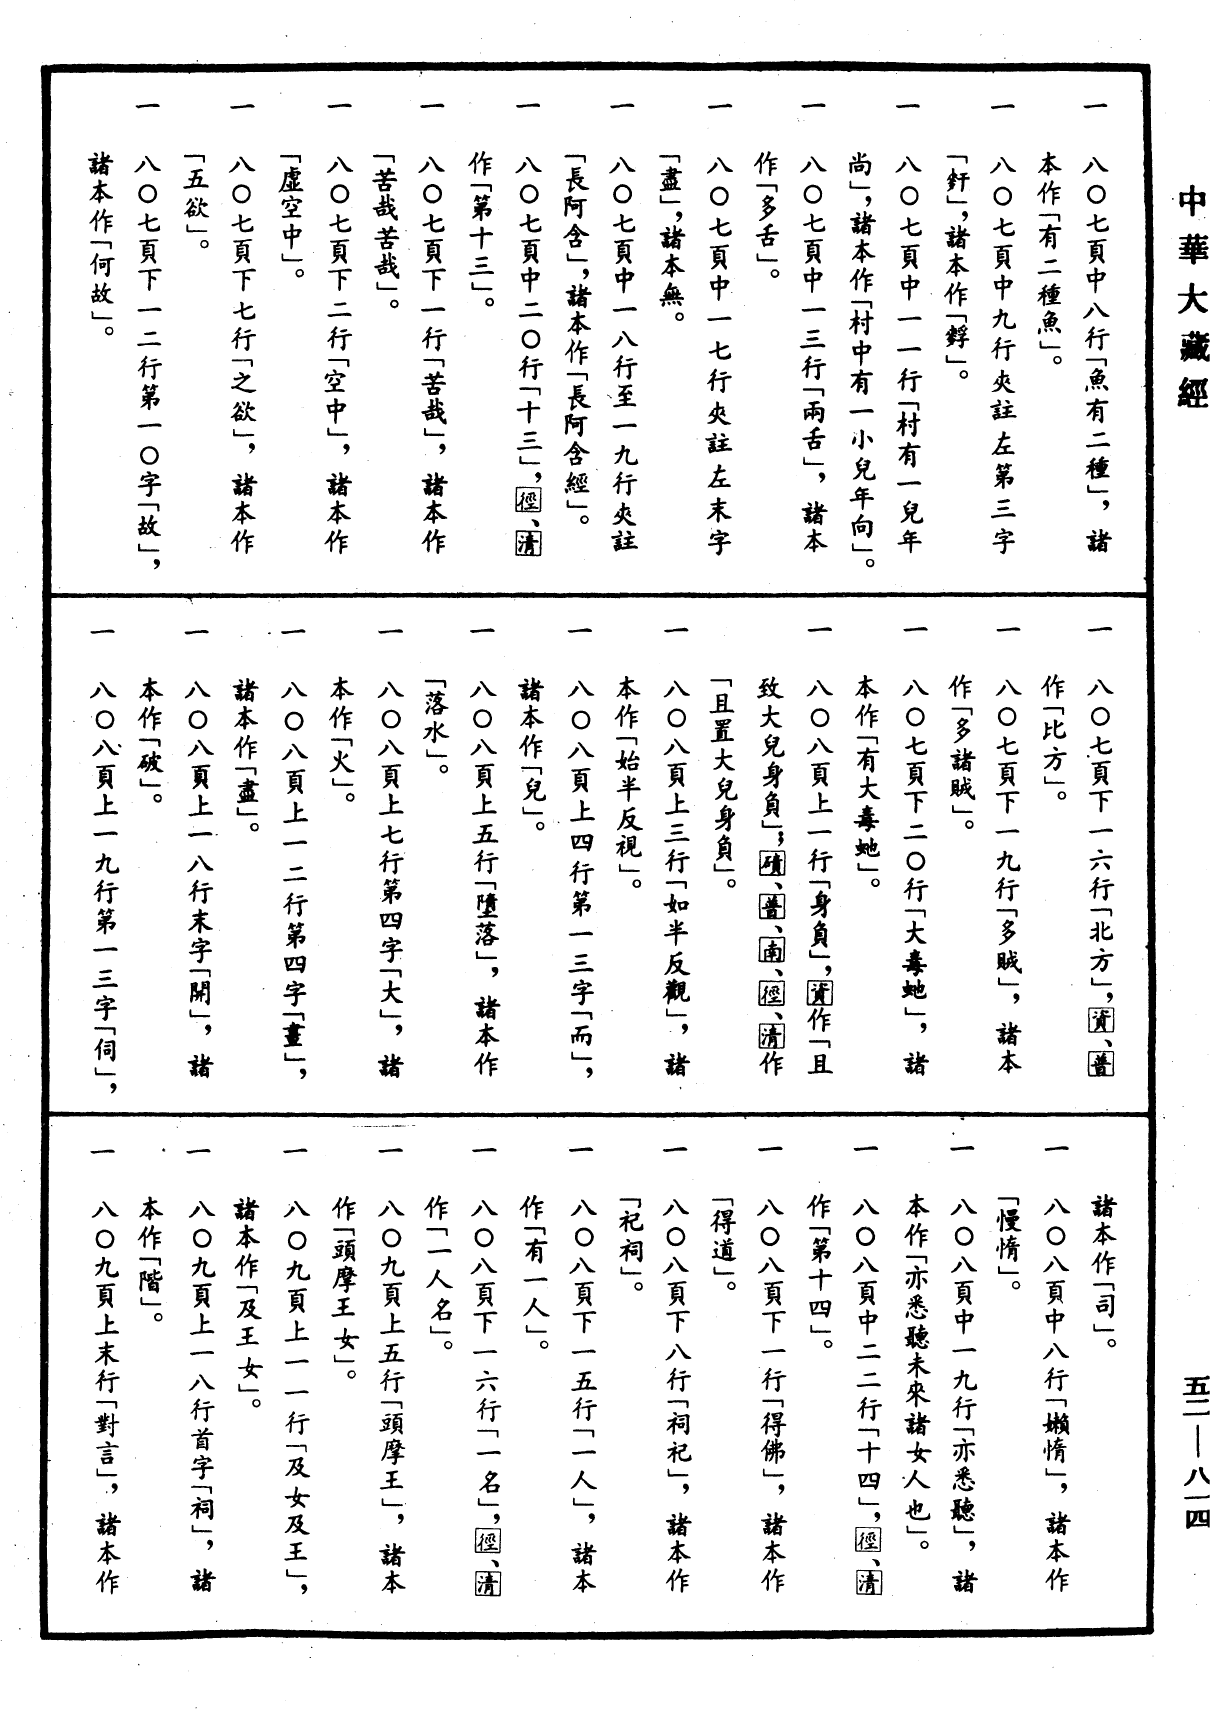 中華大藏經
一　八〇七頁中八行「魚有二種」，諸
本作「有二種魚」。
一　八〇七頁中九行夾註左第三字
「釪」，諸本作「䤵」。
一　八〇七頁中一一行「村有一兒年
尚」，諸本作「村中有一小兒年向」。
一　八〇七頁中一三行「兩舌」，諸本
作「多舌」。
一　八〇七頁中一七行夾註左末字
「盡」，諸本無。
一　八〇七頁中一八行至一九行夾註
「長阿含」，諸本作「長阿含經」。
一　八〇七頁中二〇行「十三」，徑、清
作「第十三」。
一　八〇七頁下一行「苦哉」，諸本作
「苦哉苦哉」。
一　八〇七頁下二行「空中」，諸本作
「虛空中」。
一　八〇七頁下七行「之欲」，諸本作
「五欲」。
一　八〇七頁下一二行第一〇字「故」，
諸本作「何故」。
一　八〇七頁下一六行「北方」，資、普
作「比方」。
一　八〇七頁下一九行「多賊」，諸本
作「多諸賊」。
一　八〇七頁下二〇行「大毒虵」，諸
本作「有大毒虵」。
一　八〇八頁上一行「身負」，資作「且
致大兒身負」；磧、普、南、徑、清作
「且置大兒身負」。
一　八〇八頁上三行「如半反觀」，諸
本作「始半反視」。
一　八〇八頁上四行第一三字「而」，
諸本作「兒」。
一　八〇八頁上五行「墮落」，諸本作
「落水」。
一　八〇八頁上七行第四字「大」，諸
本作「火」。
一　八〇八頁上一二行第四字「晝」，
諸本作「盡」。
一　八〇八頁上一八行末字「開」，諸
本作「破」。
一　八〇八頁上一九行第一三字「伺」，
諸本作「司」。
一　八〇八頁中八行「嬾惰」，諸本作
「慢惰」。
一　八〇八頁中一九行「亦悉聽」，諸
本作「亦悉聽未來諸女人也」。
一　八〇八頁中二二行「十四」，徑、清
作「第十四」。
一　八〇八頁下一行「得佛」，諸本作
「得道」。
一　八〇八頁下八行「祠祀」，諸本作
「祀祠」。
一　八〇八頁下一五行「一人」，諸本
作「有一人」。
一　八〇八頁下一六行「一名」，徑、清
作「一人名」。
一　八〇九頁上五行「頭摩王」，諸本
作「頭摩王女」。
一　八〇九頁上一一行「及女及王」，
諸本作「及王女」。
一　八〇九頁上一八行首字「祠」，諸
本作「階」。
一　八〇九頁上末行「對言」，諸本作
五二—八一四